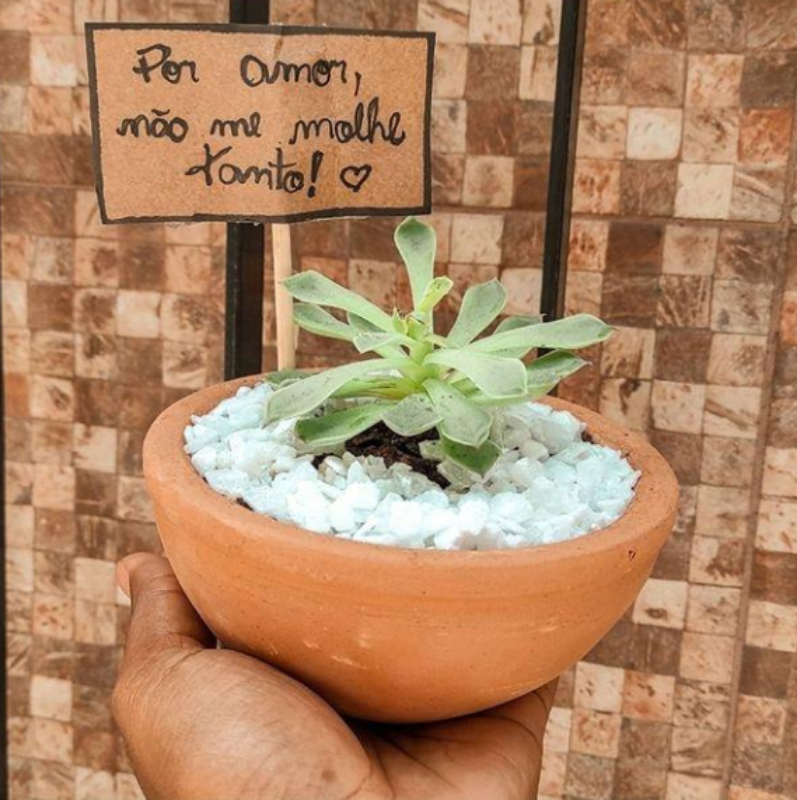 Por amor,
não me molhe
tanto! ♡